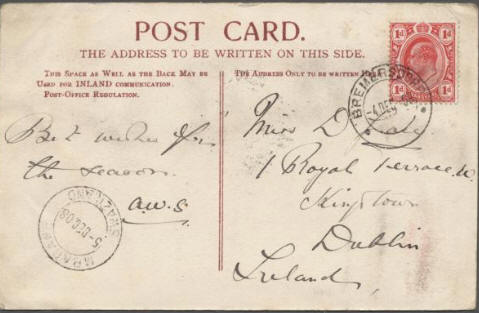 POST CARD.
THE ADDRESS TO BE WRITTEN ON THIS SIDE.
THIS SPACE AS WELL AS THE BACK MAY BE
USED FOR INLAND COMMUNICATION.
POST-OFFICE REGULATION.
THE ADDRESS ONLY TO BE WRITTEN
1d 1d
1d 1d
BREMERSDORP
4 DEC 08
Best wishes for
the season.
a.w.s.
Miss D
1 Royal Terrace W.
Kingstown
Dublin
Ireland
SWAZIELAND
5-DEC 08